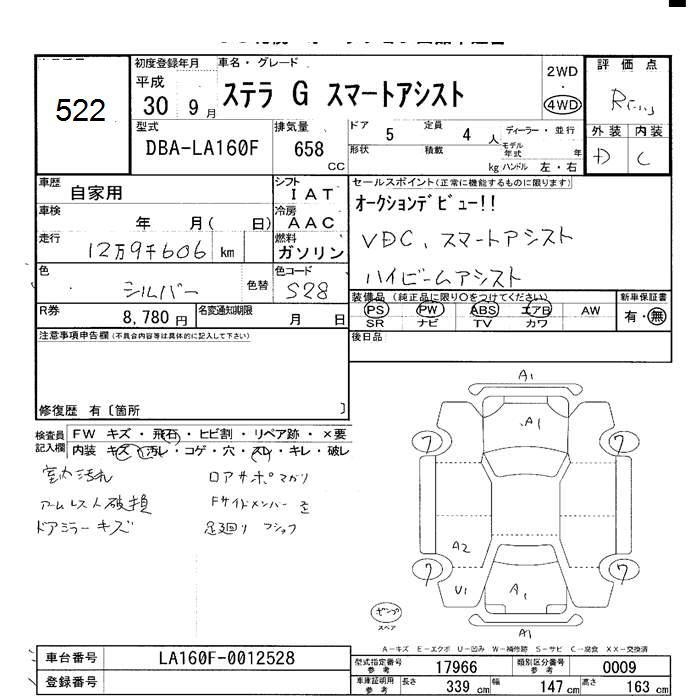 522
初度登録年月
平成
30 9月
車名・グレード
ステラ G スマートアシスト
2WD
・
4WD
評価点
外装 内装
D C
型式
DBA-LA160F
排気量
658
CC
ドア 5 定員 4 人
形状 積載 kg
ディーラー・並行
モデル年式 年
ハンドル 左・右
車歴
自家用
シフト
IAT
車検
年 月( 日)
冷房
AAC
走行
12万9千606 km
燃料
ガソリン
セールスポイント(正常に機能するものに限ります)
オークションデビュー!!
VDC、スマートアシスト
ハイビームアシスト
色
シルバー
色替
色コード
S28
R券
8,780円
名変通知期限
月 日
装備品 (純正品に限り○をつけてください)
PS PW ABS エアB AW
SR ナビ TV カワ
新車保証書
有・無
注意事項申告欄(不具合内容等は具体的に記入して下さい)
後日品
修復歴 有〔箇所 〕
検査員記入欄
FW キズ・飛石・ヒビ割・リペア跡・×要
内装 キズ・汚レ・コゲ・穴・スレ・キレ・破レ
室内汚れ
アームレスト破損
ドアミラーキズ
ロアサポマガリ
Fサイドメンバー
足廻り
A1
A1
フ フ
A2
フ フ
U1 A1
A1
スペア
A-キズ E-エクボ U-凹み W-補修跡 S-サビ C-腐食 XX-交換済
車台番号 LA160F-0012528
登録番号
型式指定番号 参考 17966
類別区分番号 参考 0009
車庫証明用 参考 長さ 339 cm 幅 147 cm 高さ 163 cm